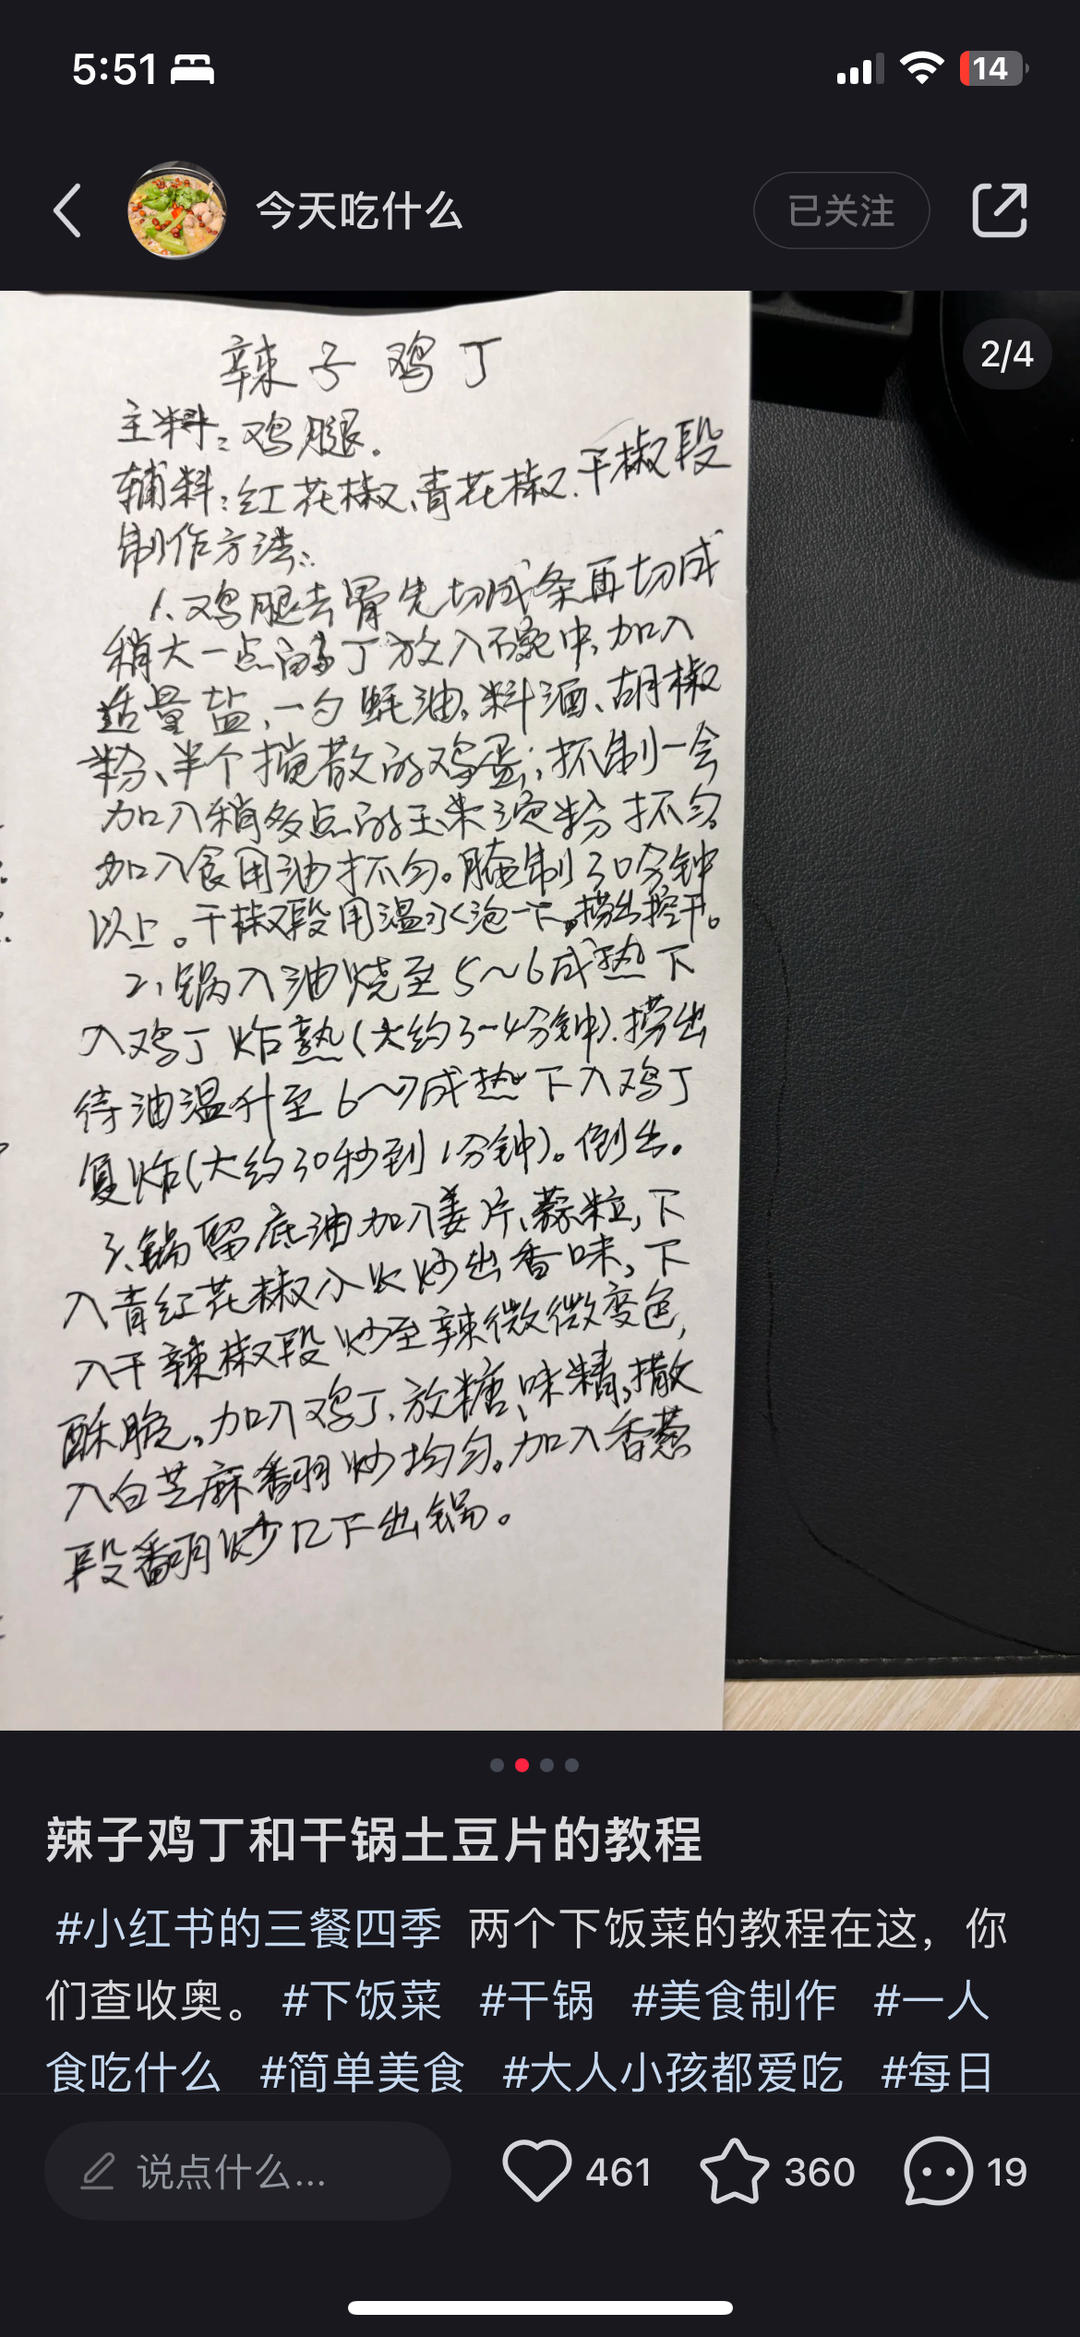 5:51
14
今天吃什么
已关注
2/4
辣子鸡丁
主料:鸡腿.
辅料:红花椒、青花椒.干椒段
制作方法:
1.鸡腿去骨先切成条再切成
稍大一点的丁放入碗中,加入
适量盐,一勺蚝油,料酒、胡椒
粉、半个搅散的鸡蛋;抓制一会
加入稍多点的玉米淀粉抓匀
加入食用油抓匀。腌制30分钟
以上。干椒段用温水泡一下,捞出控干。
2、锅入油烧至5~6成热下
入鸡丁炸熟(大约3-4分钟).捞出
待油温升至6~7成热下入鸡丁
复炸(大约30秒到1分钟)。倒出。
3、锅留底油加入姜片、蒜粒,下
入青红花椒小火炒出香味,下
入干辣椒段炒至辣微微变色,
酥脆。加入鸡丁.放糖、味精,撒
入白芝麻翻炒均匀。加入香葱
段翻炒几下出锅。
辣子鸡丁和干锅土豆片的教程
#小红书的三餐四季 两个下饭菜的教程在这，你
们查收奥。 #下饭菜 #干锅 #美食制作 #一人
食吃什么 #简单美食 #大人小孩都爱吃 #每日
说点什么...
461
360
19